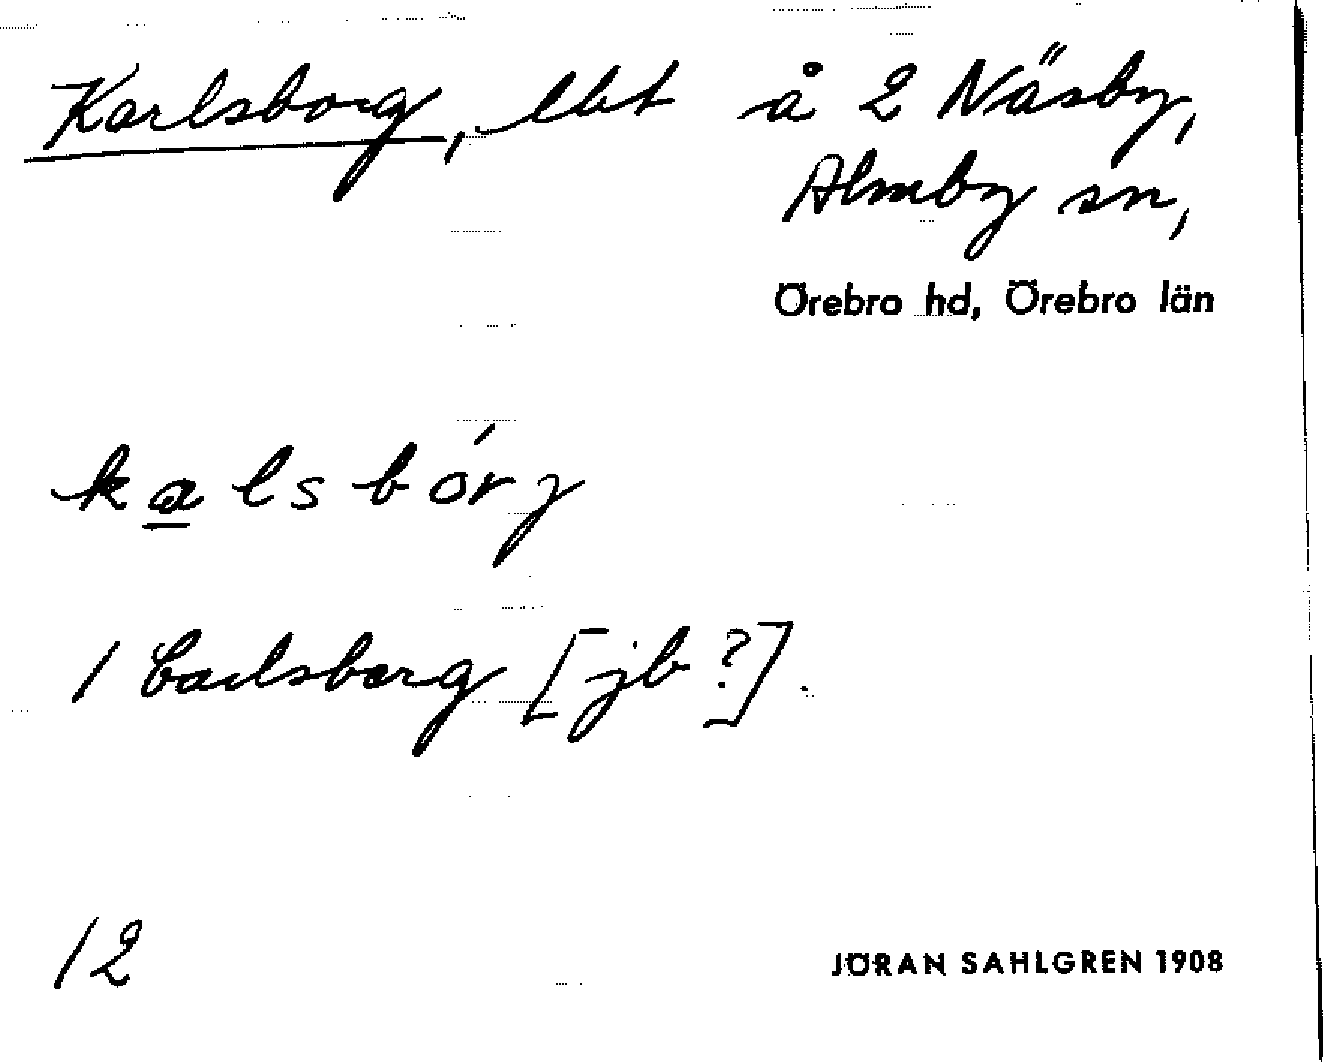 Karlsborg, lht å 2 Näsby,
Almby sn,
Örebro hd, Örebro län
kalsbórj
1 Carlsberg [jb?].
12
JÖRAN SAHLGREN 1908